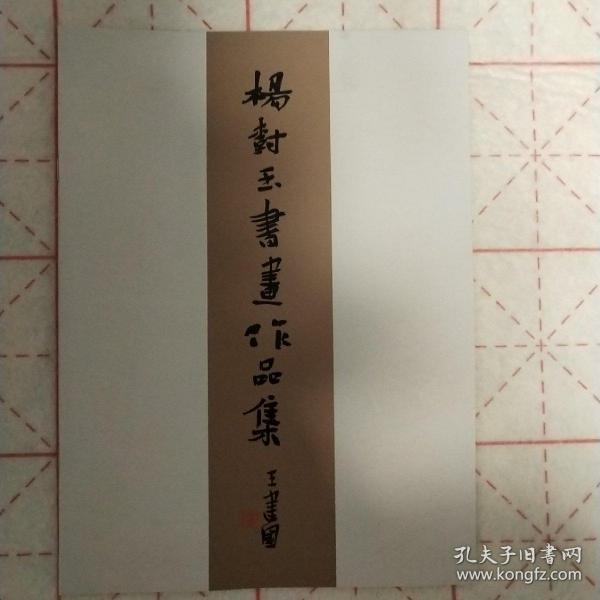 楊對玉書畫作品集
孔夫子旧書网
www.kongfz.com